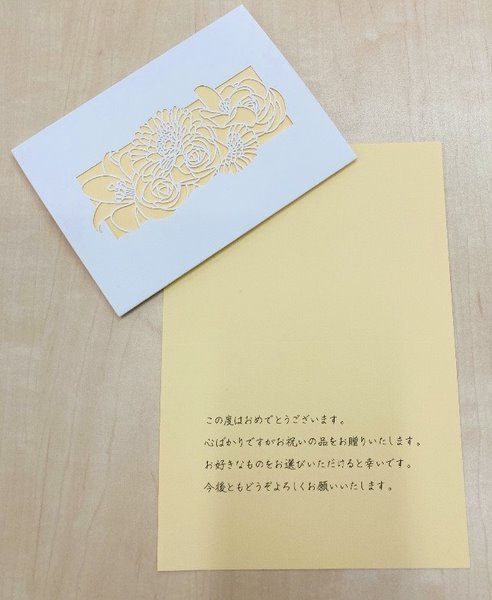 この度はおめでとうございます。
心ばかりですがお祝いの品をお贈りいたします。
お好きなものをお選びいただけると幸いです。
今後ともどうぞよろしくお願いいたします。